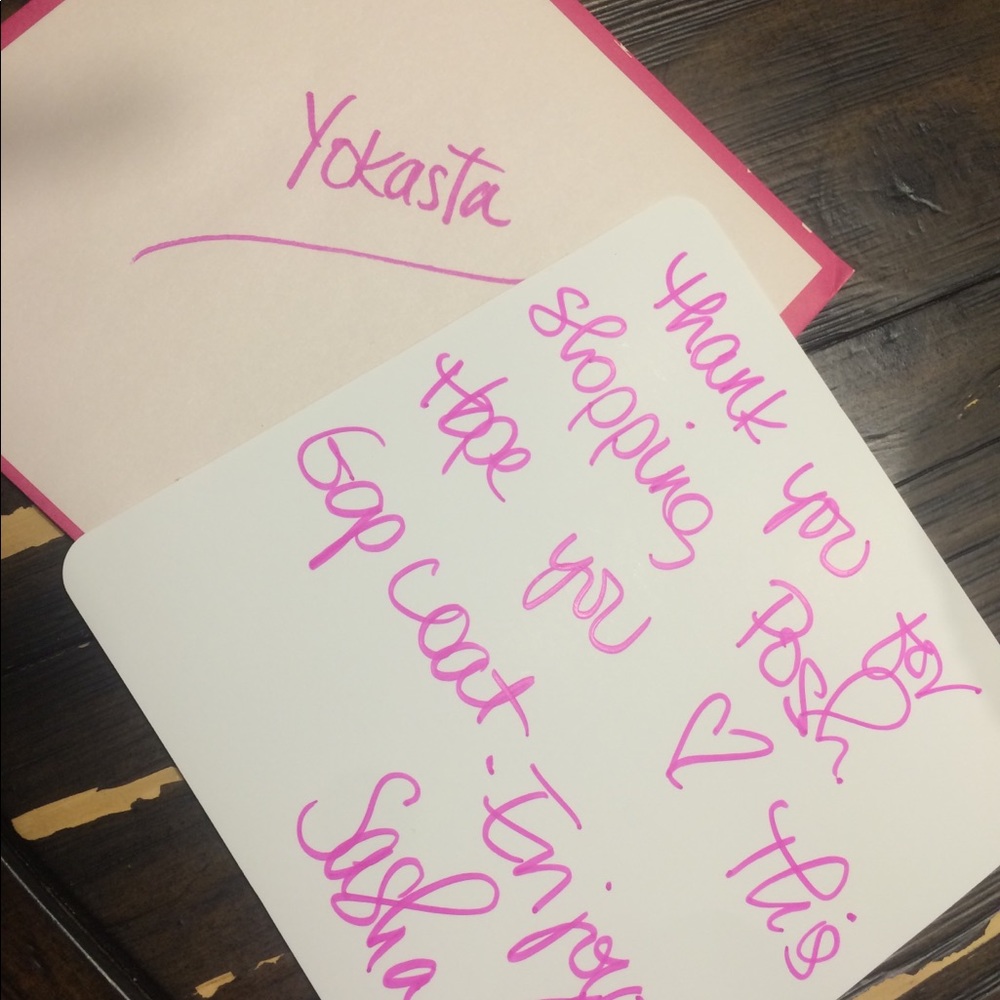 Yokasta
Thank you for
shopping Posh
Hope you ♡ this
Gap coat. Injoy
Sasha